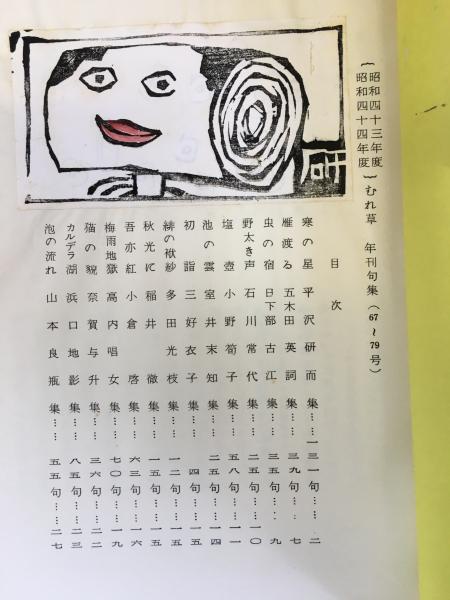 昭和四十三年度
昭和四十四年度
むれ草 年刊句集(67~79号)
目次
寒の星 平沢研而集……一三一句……二
雁渡る 五木田英詞集……三九句……七
虫の宿 日下部古江集……三五句……九
野太き声 石川常代集……二五句……一〇
塩壺 小野筍子集……五八句……一一
池の雲 室井末知集……二五句……一四
初詣 三好衣子集……四句……一五
緋の袱紗 多田光枝集……一二句……一五
秋光に 稲井徹集……一五句……一五
吾亦紅 小倉啓集……六三句……一六
梅雨地獄 高内唱女集……七〇句……一九
猫の貌 奈賀与升集……三六句……二二
カルデラ湖 浜口地影集……八五句……二三
泡の流れ 山本良瓶集……五五句……二七
研